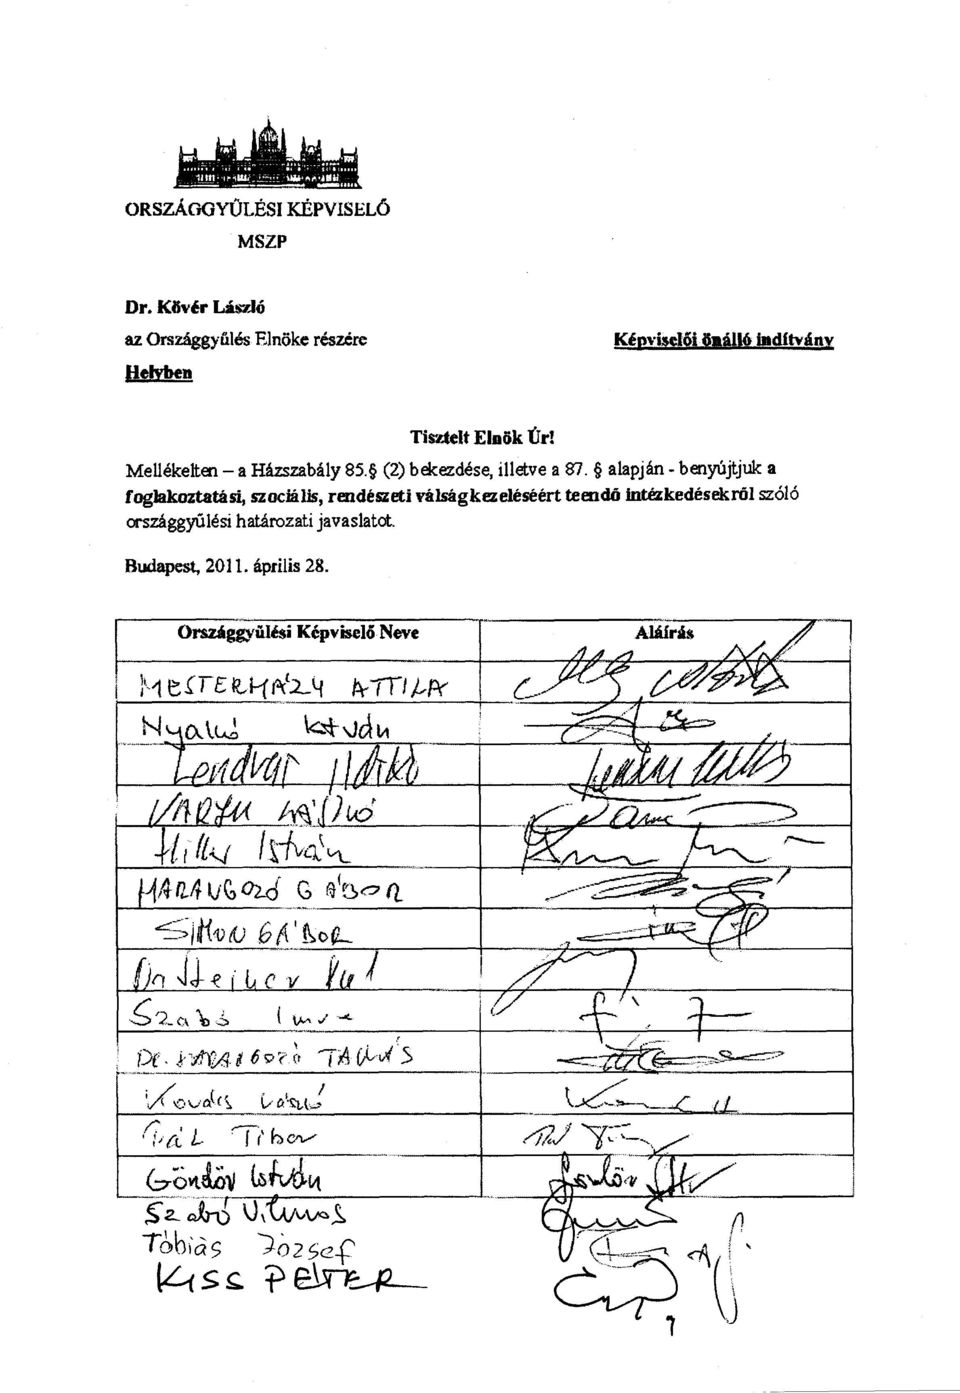 ORSZÁGGYŰLÉSI KÉPVISELŐ
MSZP
Dr. Kövér László
az Országgyűlés Elnöke részére
Képviselői önálló indítvány
Helyben
Tisztelt Elnök Úr!
Mellékelten – a Házszabály 85.§ (2) bekezdése, illetve a 87. § alapján - benyújtjuk a
foglakoztatási, szociális, rendészeti válságkezeléséért teendő intézkedésekről szóló
országgyűlési határozati javaslatot.
Budapest, 2011. április 28.
Országgyűlési Képviselő Neve Aláírás
MESTERHÁZY ATTILA
Nyakó István
Lendvai Ildikó
VARJU LÁSZLÓ
Hiller István
HARANGOZÓ GÁBOR
SIMON GÁBOR
Dr Steiner Pál
Szabó Imre
Dr. HARANGOZÓ TAMÁS
Kovács László
Pál Tibor
Göndör István
Szabó Vilmos
Tóbiás József
KISS PÉTER